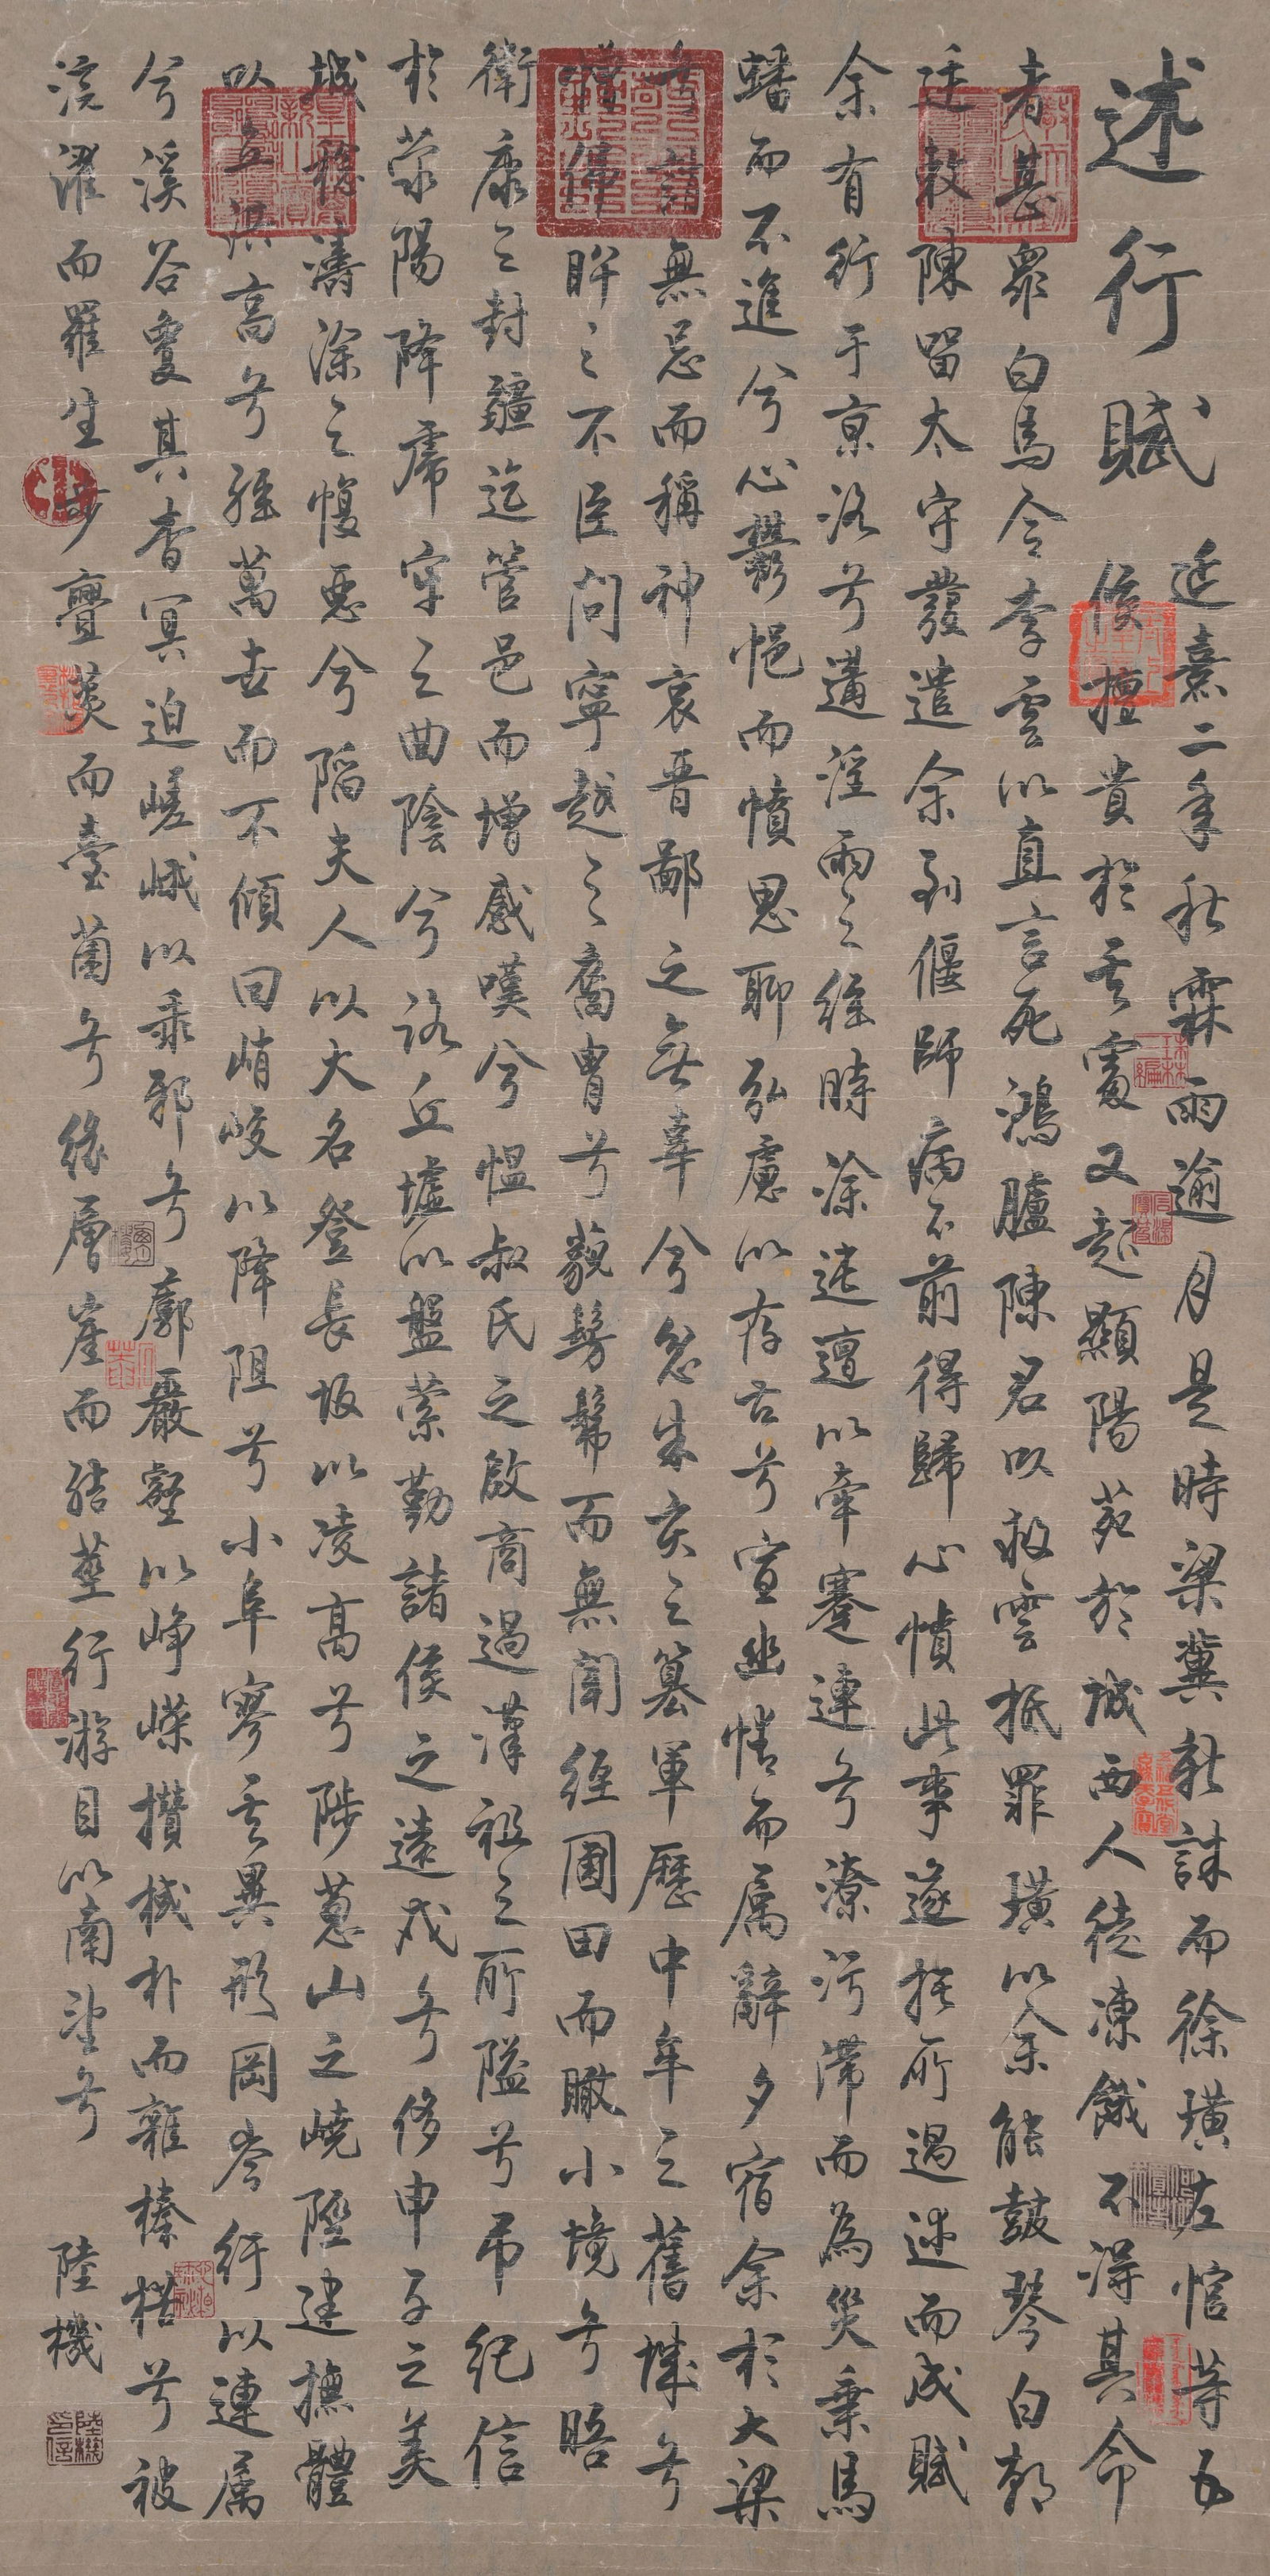 述行賦
延熹二年秋霖雨逾月是時梁冀新誅而徐璜左悺等五
侯擅貴於其處又起顯陽苑於城西人徒凍餓不得其命
者甚眾白馬令李雲以直言死鴻臚陳君以救雲抵罪璜以余能鼓琴白朝
廷敕陳留太守發遣余到偃師病不前得歸心憤此事遂託所過述而成賦
余有行于京洛兮遘淫雨之經時塗迍邅以牽蹇連兮潦污滯而為災乘馬
蟠而不進兮心鬱悒而憤思聊弘慮以存古兮宣幽情而屬辭夕宿余於大梁
兮誚無忌而稱神哀晉鄙之無辜兮忿朱亥之篡軍歷中牟之舊城兮
憎佛肸之不臣問寧越之裔胄兮藐髣髴而無聞經圃田而瞰小境兮晤
衛康之封疆迄管邑而增感嘆兮慍叔氏之啟商過漢祖之所隘兮弔紀信
於滎陽降虎牢之曲陰兮路丘墟以盤縈勤諸侯之遠戍兮侈申子之美
城稔濤塗之愎惡兮陷夫人以大名登長坂以凌高兮陟蔥山之嶢陘建撫體
以立洪高兮經萬世而不傾回峭峻以降阻兮小阜寥其異形岡岑紆以連屬
兮溪谷夐其杳冥迫嵯峨以乖邪兮廓巖壑以崢嶸攢棫朴而雜榛楛兮被
浣濯而羅生步亹菼而臺菌兮緣層崖而結莖行游目以南望兮 陸機
陸機印信